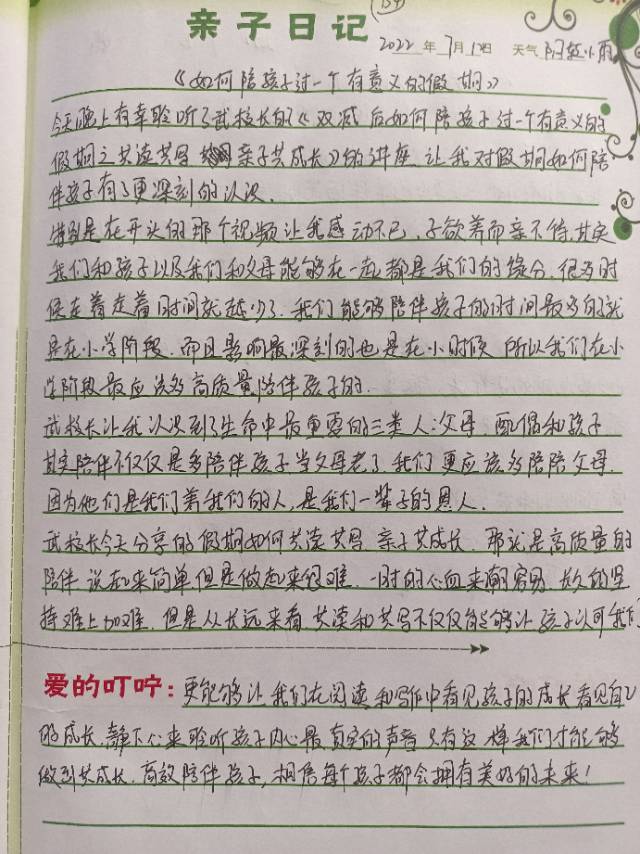 亲子日记
2022年7月1日 天气 阴转小雨
《如何陪孩子过一个有意义的假期》
今天晚上有幸聆听了武校长的《双减后如何陪孩子过一个有意义的
假期之共读共写 亲子共成长》的讲座 让我对假期如何陪
伴孩子有了更深刻的认识.
特别是在开头的那个视频让我感动不已,子欲养而亲不待,其实
我们和孩子以及我们和父母能够在一起都是我们的缘分,很多时
候走着走着时间就越少了.我们能够陪伴孩子的时间最多的就
是在小学阶段.而且影响最深刻的也是在小时候 所以我们在小
学阶段最应该多高质量陪伴孩子的.
武校长让我认识到了生命中最重要的三类人:父母.配偶和孩子
其实陪伴不仅仅是多陪伴孩子当父母老了.我们更应该多陪陪父母.
因为他们是我们养我们的人,是我们一辈子的恩人.
武校长今天分享的假期如何共读共写 亲子共成长.那就是高质量的
陪伴 说起来简单但是做起来很难.一时的心血来潮容易.长久的坚
持难上加难.但是从长远来看 共读和共写不仅仅能够让孩子认可我们
爱的叮咛:更能够让我们在阅读和写作中看见孩子的成长看见自己
的成长.静下心来聆听孩子内心最真实的声音 只有这样我们才能够
做到共成长.高效陪伴孩子,相信每个孩子都会拥有美好的未来!